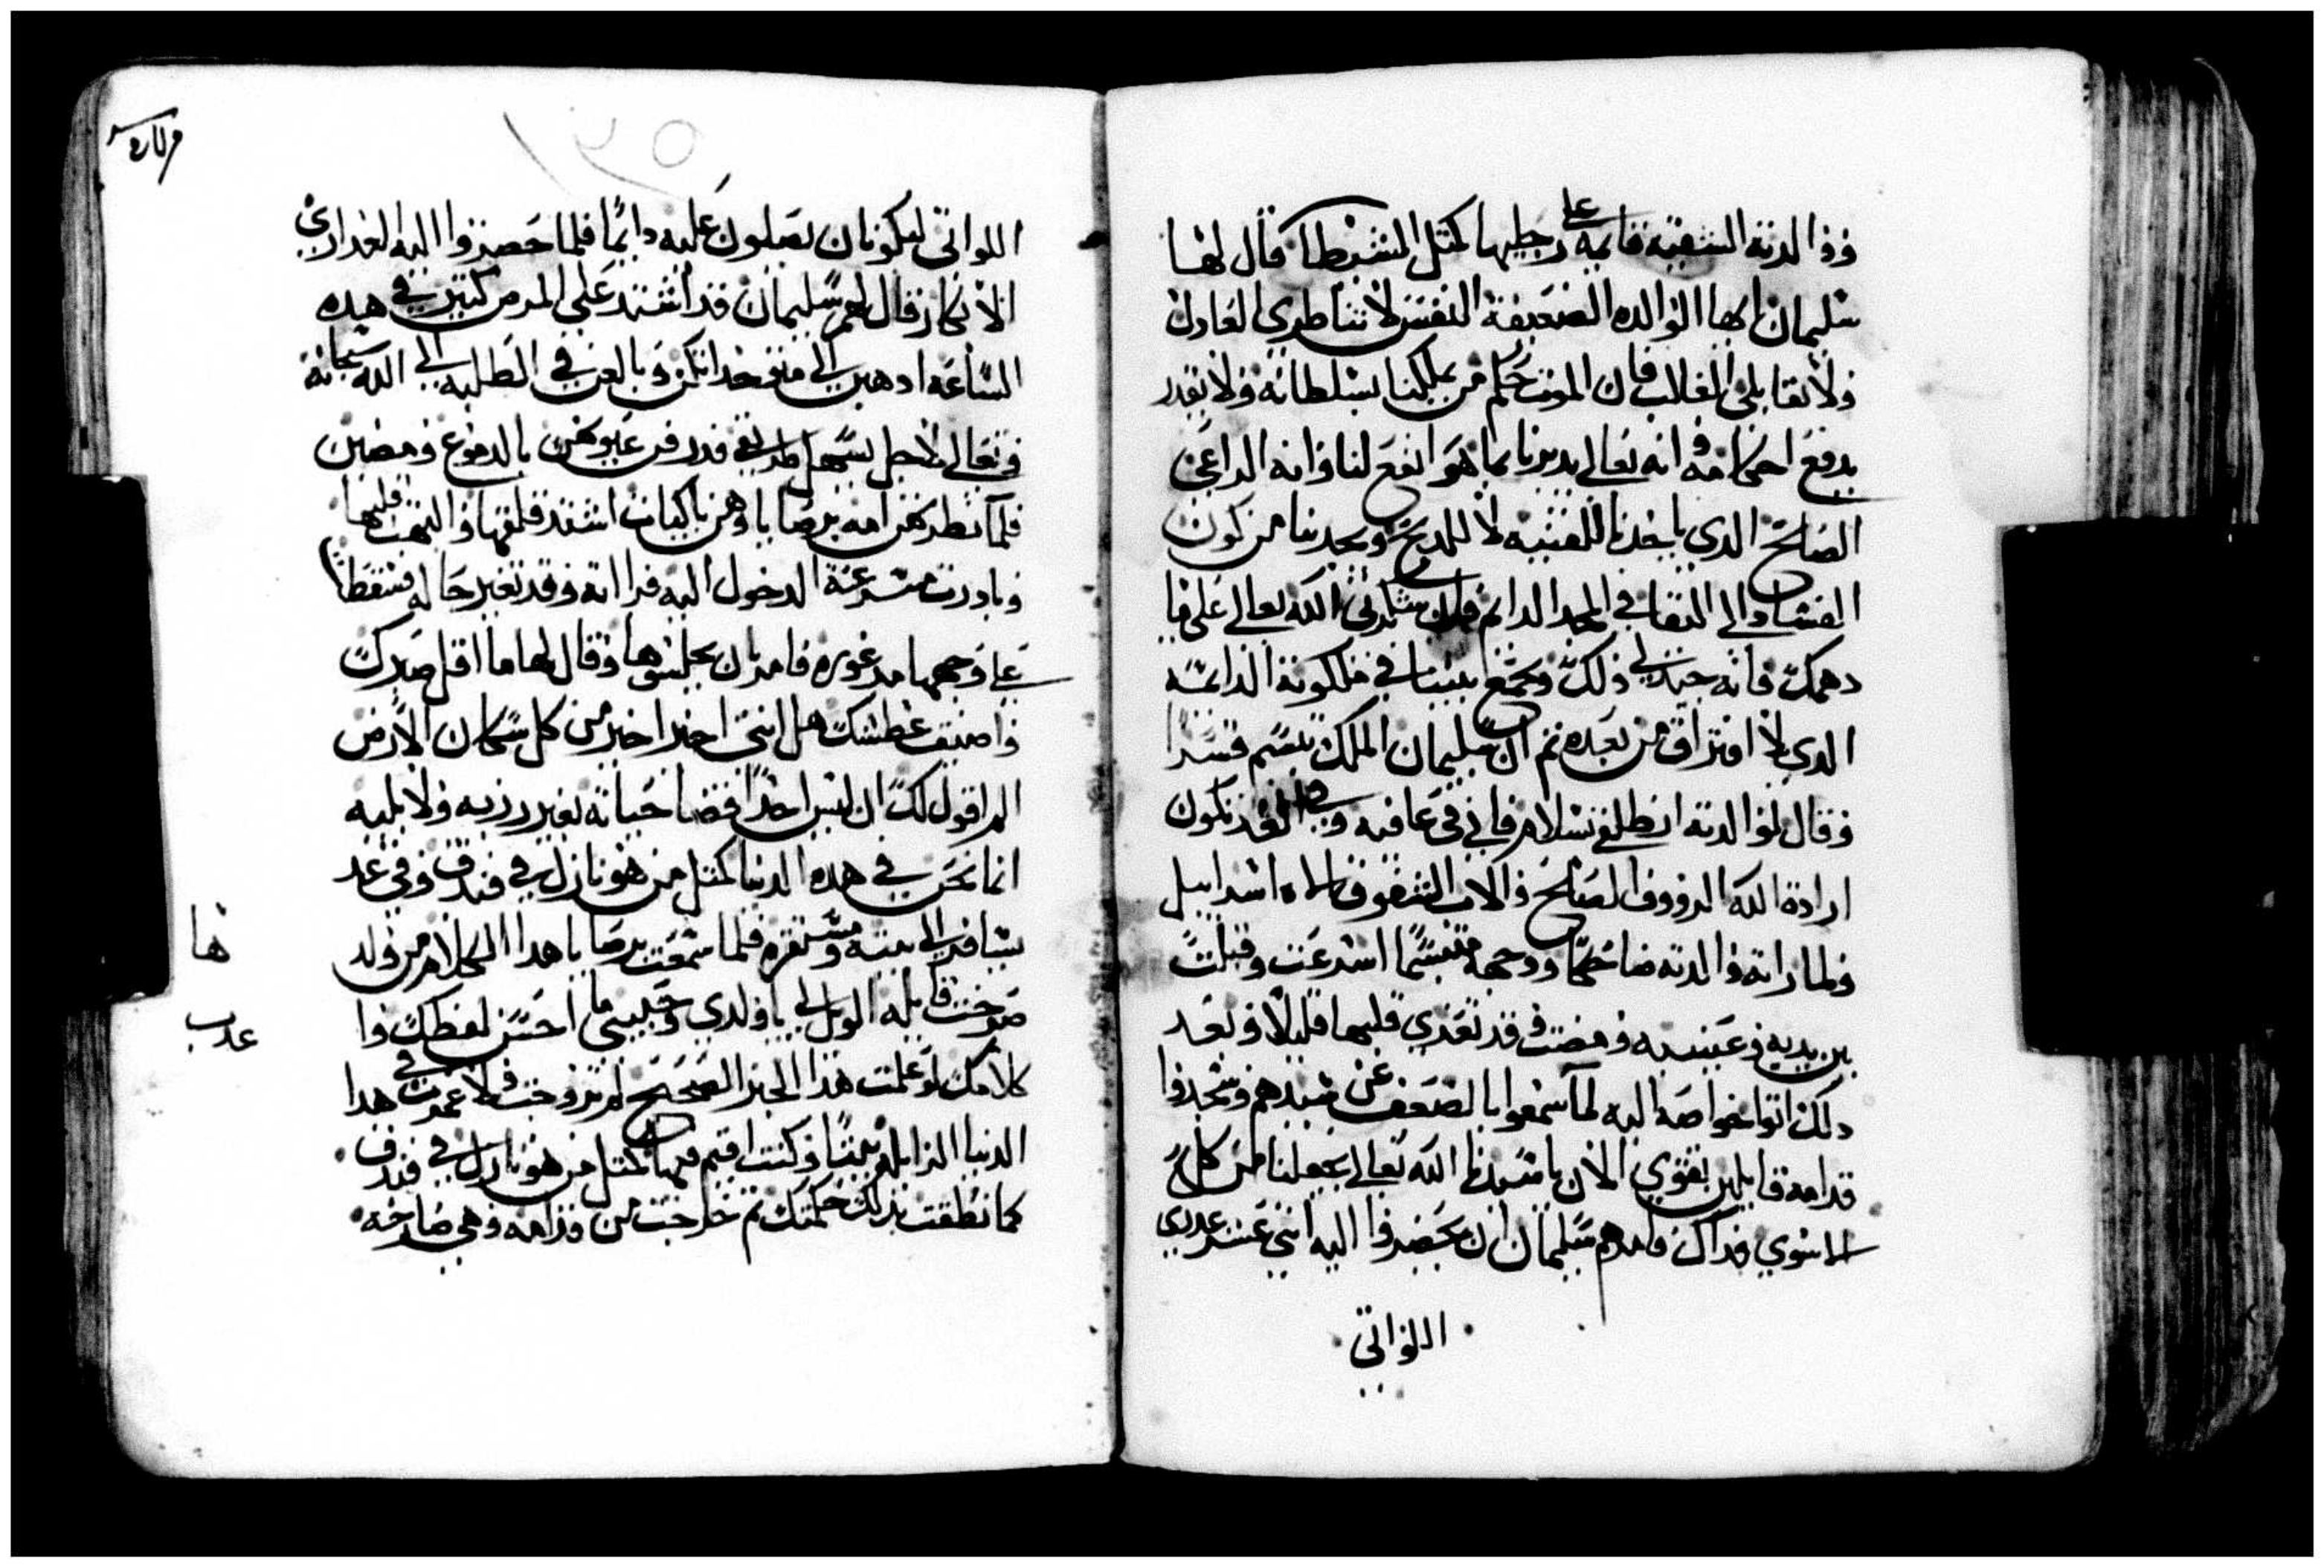 ووالدته الشقيه قايمه على رجليها كمثل المشيطا قال لها
سليمان ايها الوالده الضعيفة النفس لا تناطري العادل
ولا تقابلي الغالب فان الموت حكم من يملكنا بسلطانه ولا نقدر
بدفع احكامه وانه تعالى يدبرنا بما هو انفع لنا وانه الراعي
الصالح الدي ياخدنا للقنيه لا للدبح ويجدبنا من كون
الفساد الى البقا في المجد الدايم شكرتي الله تعالى على ما
دهمك فانه جيد لي ولك ويجمع بيننا في ملكوته الدايمه
الدي لا افتراق من بعده تم ان سليمان الملك تبسم
وقال لوالدته انطلقي بسلام فاني في عافيه وفي الغد تكون
ارادة الله الرووف الصالح والاب الشفوق الاه اسراييل
ولما راته والدته ضاحكًا ووجهه متبسمًا اسرعت وقبلت
بين يديه وعينيه ومضت وقد تعزي قلبها قليلًا وبعد
دلك اتوا خواصه اليه لما سمعوا بالضعف عن سيدهم وسجدوا
قدامه قايلين بقوي الان يا سيدنا الله تعالى يجعلنا من كل
الاسوي فداك فامرهم سليمان ان يحضروا اليه اتني عشر عدري
اللواتي
١٢٥
اللواتي ليكونا ان يصلون عليه دايمًا فلما حضروا اليه العداري
الابكار قال لهم سليمان قد اشتد علي المرض كتير في هده
الساعه ادهبن الى مخدعكن وبالغن في الطلبه الى الله سبحانه
وتعالى لاجل تسهل طريقي فدرفن عيونهن بالدموع ومضين
فلما نظرهن امه برصابا وهن باكيات اشتد قلقها والتهب قلبها
وبادرت مسرعة الدخول اليه فراته وقد تغير حاله فسقطت
على وجهها مدعوره فامر بان يجلسوها وقال لها ما اقل صبرك
واضيق عطشك هل انتي اخير من كل سكان الارض
الم اقول لك ان ليس احدًا قضا حياته بغير رزيه ولا بليه
انما نحن في هده الدنيا كمتل من هو نازل في فندق وفي غد
يسافر الى بيته ومستقره فلما سمعت برصابا هدا الكلام من ولد
ها
صرخت قايله الويل لي يا ولدي وحبيبي ما احسن لفظك وا
عدب
كلامك لو علمت هدا الخبر الصحيح لم تزوجت ولا عمرت في هدا
الدنيا الزايله بيتًا وكنت اقيم فيها كمتل من هو نازل في فندق
كما نطقت بدلك حكمتك تم خرجت من قدامه وهي صارخه